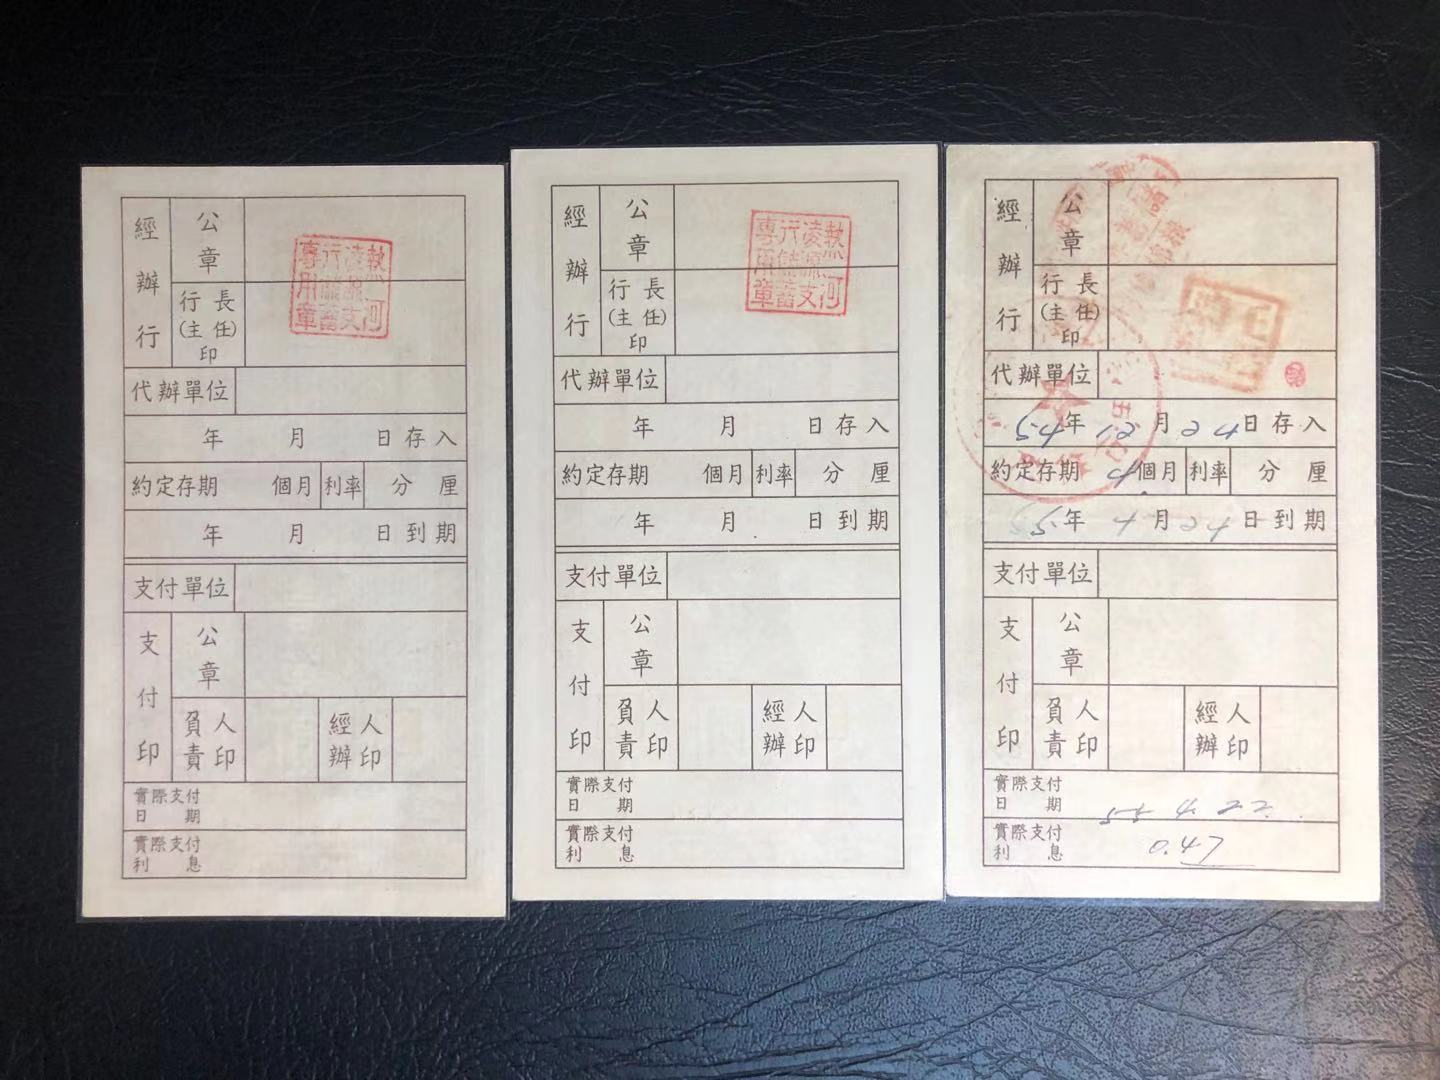 經辦行
公章
行長
(主任)
印
熱河
凌源支
行儲蓄
專用章
代辦單位
年 月 日存入
約定存期 個月 利率 分 厘
年 月 日到期
支付單位
支付印
公章
負責人印
經辦人印
實際支付
日期
實際支付
利息
經辦行
公章
行長
(主任)
印
熱河
凌源支
行儲蓄
專用章
代辦單位
年 月 日存入
約定存期 個月 利率 分 厘
年 月 日到期
支付單位
支付印
公章
負責人印
經辦人印
實際支付
日期
實際支付
利息
經辦行
公章
行長
(主任)
印
代辦單位
54年12月24日存入
約定存期 4個月 利率 分 厘
55年4月24日到期
支付單位
支付印
公章
負責人印
經辦人印
實際支付
日期 55 4 22
實際支付
利息 0.47